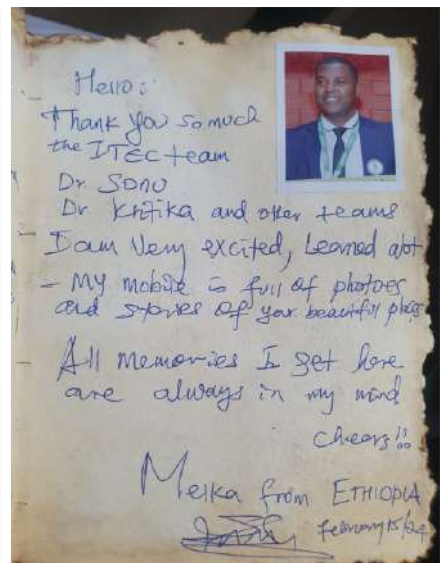 Hello:
Thank you so much
the ITEC team
Dr. Sonu
Dr Kritika and other teams
I am Very excited, Learned alot
- My mobile is full of photoes
and stories of your beautiful places
All memories I get here
are always in my mind
cheers!!
Melka from ETHIOPIA
February 15/24